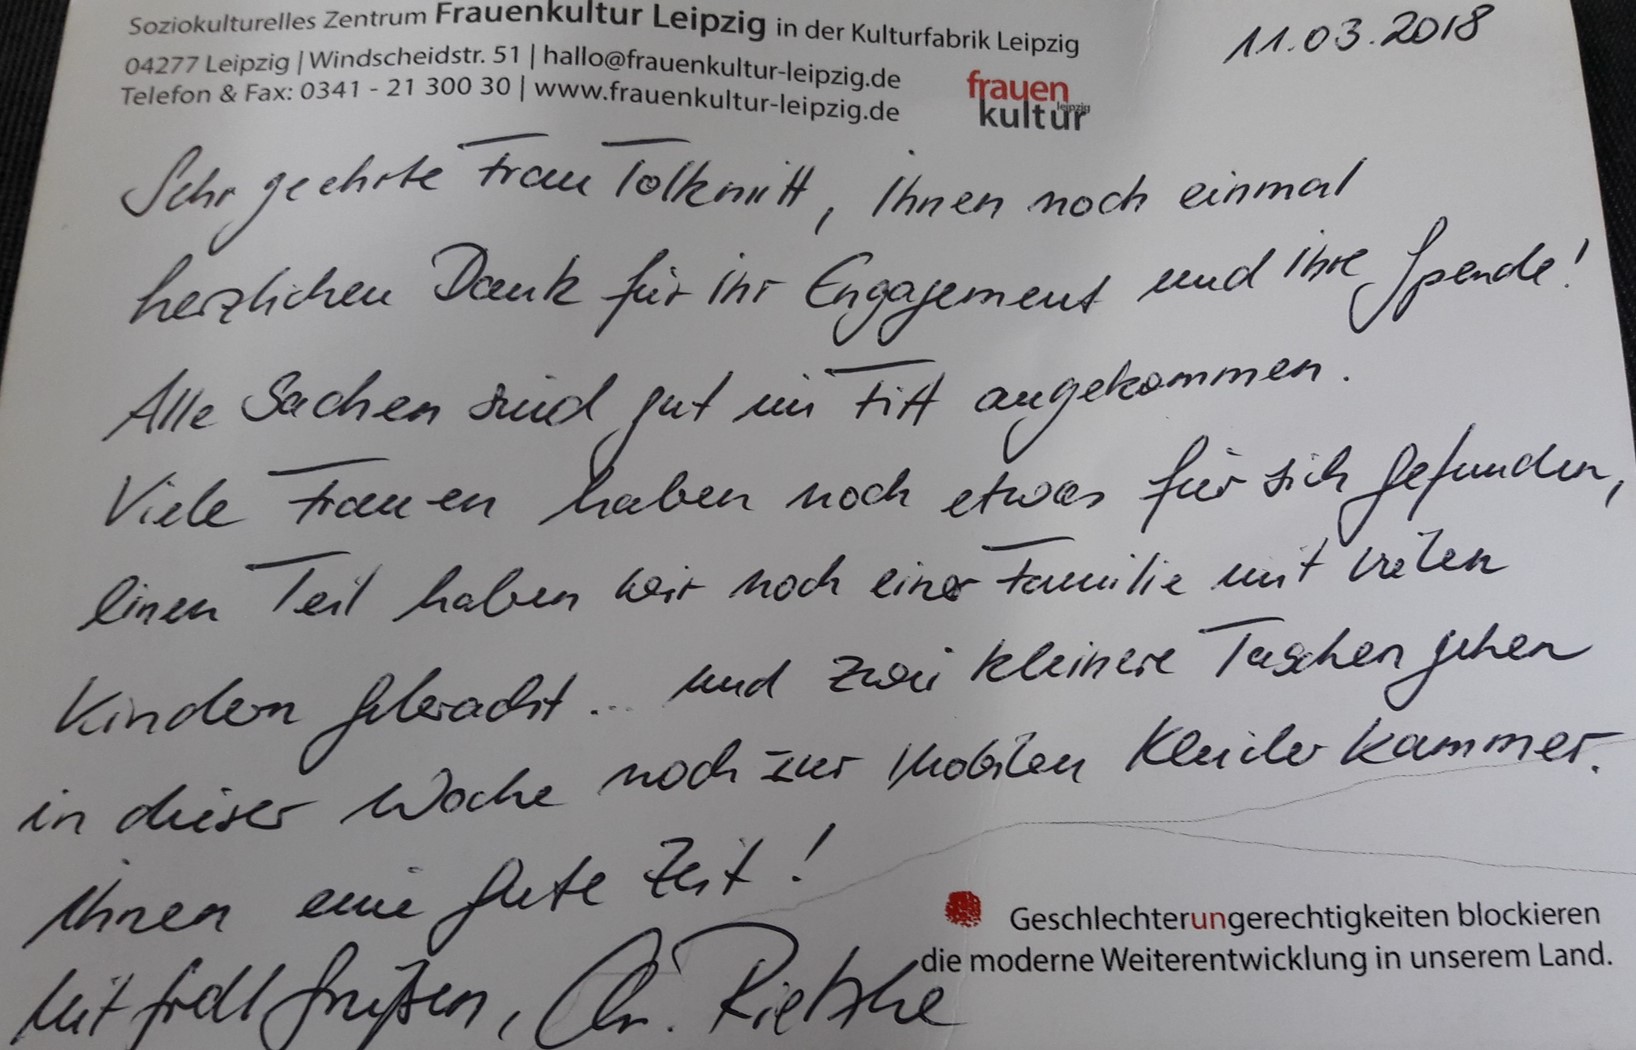 Soziokulturelles Zentrum Frauenkultur Leipzig in der Kulturfabrik Leipzig
04277 Leipzig | Windscheidstr. 51 | hallo@frauenkultur-leipzig.de
Telefon & Fax: 0341 - 21 300 30 | www.frauenkultur-leipzig.de
frauen
kultur leipzig
11.03.2018
Sehr geehrte Frau Tolknitt, Ihnen noch einmal
herzlichen Dank für Ihr Engagement und Ihre Spende!
Alle Sachen sind gut im Fitt angekommen.
Viele Frauen haben noch etwas für sich gefunden,
einen Teil haben wir noch einer Familie mit vielen
Kindern gebracht... und zwei kleinere Taschen gehen
in dieser Woche noch zur Mobilen Kleiderkammer.
Ihnen eine gute Zeit!
Mit frdll Grüßen, Chr. Rietzke
Geschlechterungerechtigkeiten blockieren
die moderne Weiterentwicklung in unserem Land.